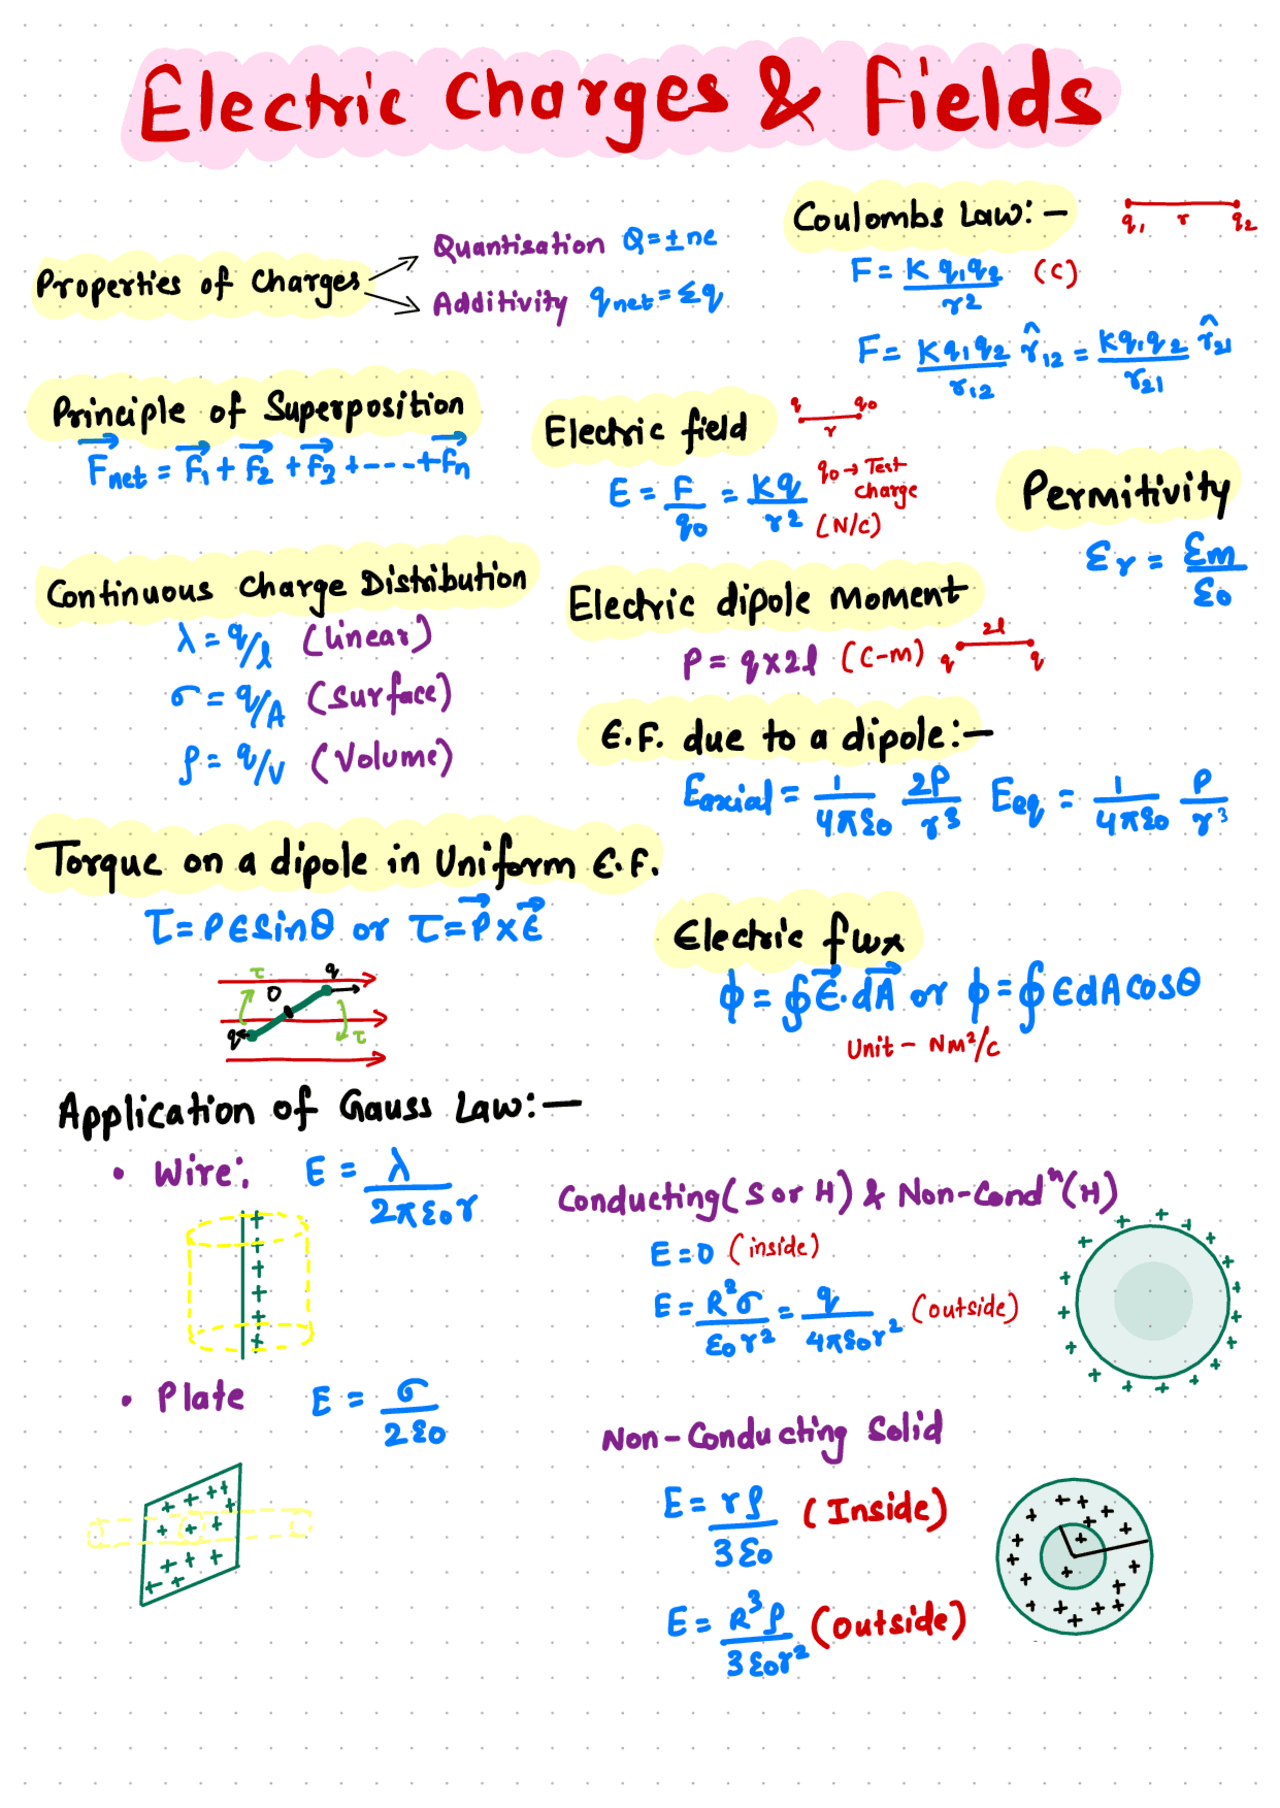 Electric Charges & Fields
Properties of Charges
Quantisation Q=±ne
Additivity qnet=Σq
Coulombs Law:-
q1 r q2
F= K q1q2/r2 (C)
F= Kq1q2/r12 r̂12 = Kq1q2/r21 r̂21
Principle of Superposition
Fnet = F1 + F2 + F3 +----+Fn
Electric field
q q0
r
E = F/q0 = Kq/r2
q0 → Test
charge
(N/C)
Permitivity
Er = Em/E0
Continuous Charge Distribution
λ = q/l (linear)
σ = q/A (Surface)
ρ = q/v (Volume)
Electric dipole moment
P = q×2l (C-m)
2l
q q
E.F. due to a dipole:-
Eaxial = 1/4πε0 2P/r3 Eeq = 1/4πε0 P/r3
Torque on a dipole in Uniform E.F.
τ= PEsinθ or τ=P×E
τ q
O
q τ
Electric flux
φ = ∮E.dA or φ=∮EdAcosθ
Unit - NM2/C
Application of Gauss Law:-
• Wire: E = λ/2πε0r
• Plate E = σ/2ε0
Conducting(S or H) & Non-Condn(H)
E=0 (inside)
E= R2σ/ε0r2 = q/4πε0r2 (outside)
Non-Conducting Solid
E= rρ/3ε0 (Inside)
E= R3ρ/3ε0r2 (Outside)